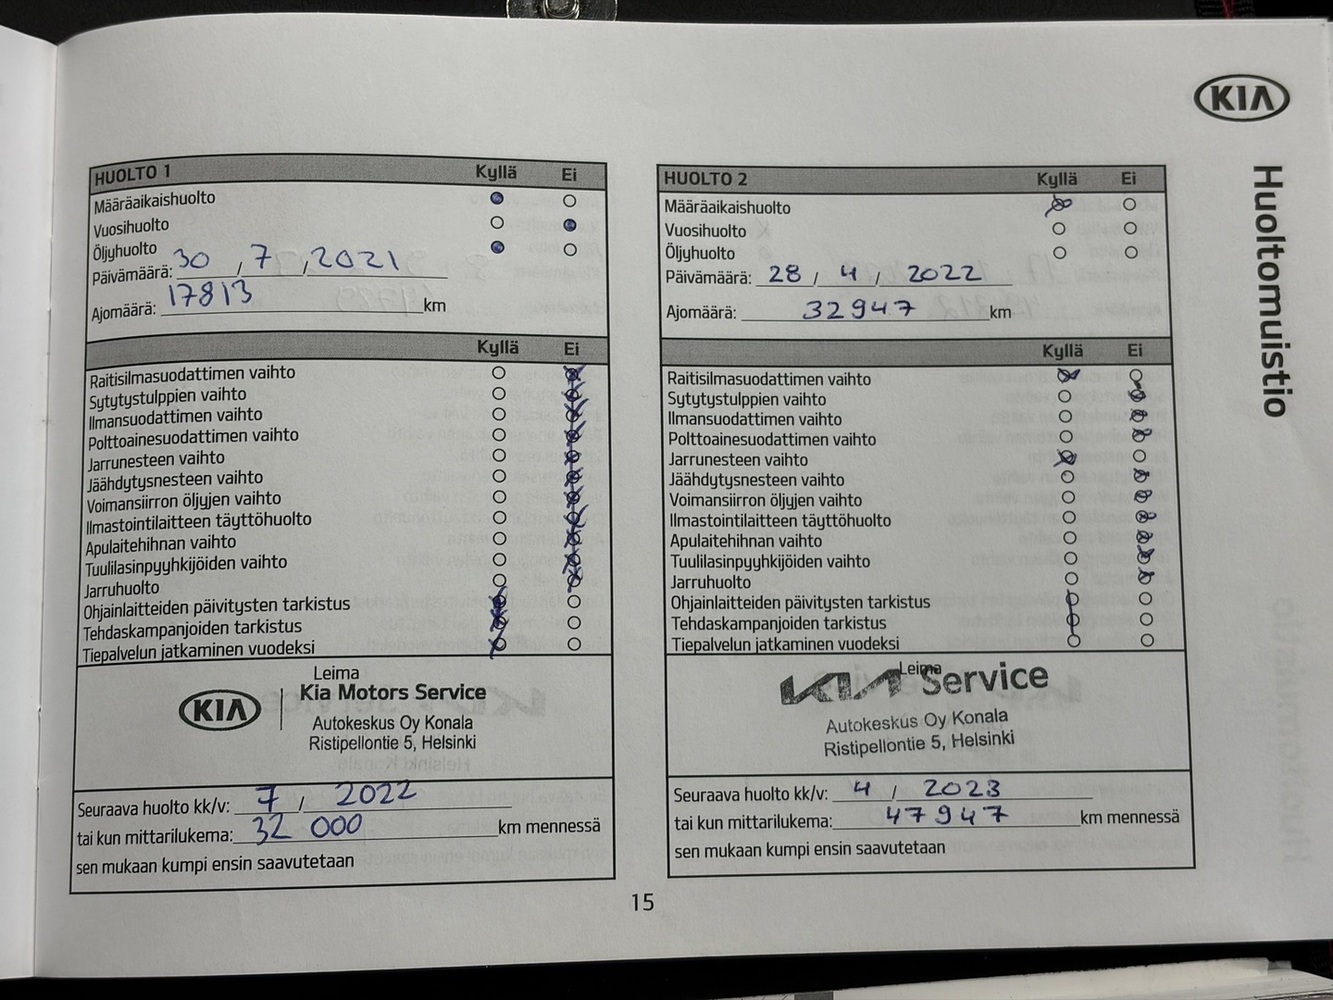 KIA
Huoltomuistio
HUOLTO 1 Kyllä Ei
Määräaikaishuolto
Vuosihuolto
Öljyhuolto
Päivämäärä: 30 / 7 / 2021
Ajomäärä: 17813 km
Kyllä Ei
Raitisilmasuodattimen vaihto
Sytytystulppien vaihto
Ilmansuodattimen vaihto
Polttoainesuodattimen vaihto
Jarrunesteen vaihto
Jäähdytysnesteen vaihto
Voimansiirron öljyjen vaihto
Ilmastointilaitteen täyttöhuolto
Apulaitehihnan vaihto
Tuulilasinpyyhkijöiden vaihto
Jarruhuolto
Ohjainlaitteiden päivitysten tarkistus
Tehdaskampanjoiden tarkistus
Tiepalvelun jatkaminen vuodeksi
Leima
KIA Kia Motors Service
Autokeskus Oy Konala
Ristipellontie 5, Helsinki
Seuraava huolto kk/v: 7 / 2022
tai kun mittarilukema: 32 000 km mennessä
sen mukaan kumpi ensin saavutetaan
HUOLTO 2 Kyllä Ei
Määräaikaishuolto
Vuosihuolto
Öljyhuolto
Päivämäärä: 28 / 4 / 2022
Ajomäärä: 32947 km
Kyllä Ei
Raitisilmasuodattimen vaihto
Sytytystulppien vaihto
Ilmansuodattimen vaihto
Polttoainesuodattimen vaihto
Jarrunesteen vaihto
Jäähdytysnesteen vaihto
Voimansiirron öljyjen vaihto
Ilmastointilaitteen täyttöhuolto
Apulaitehihnan vaihto
Tuulilasinpyyhkijöiden vaihto
Jarruhuolto
Ohjainlaitteiden päivitysten tarkistus
Tehdaskampanjoiden tarkistus
Tiepalvelun jatkaminen vuodeksi
Leima
KIA Service
Autokeskus Oy Konala
Ristipellontie 5, Helsinki
Seuraava huolto kk/v: 4 / 2023
tai kun mittarilukema: 47947 km mennessä
sen mukaan kumpi ensin saavutetaan
15